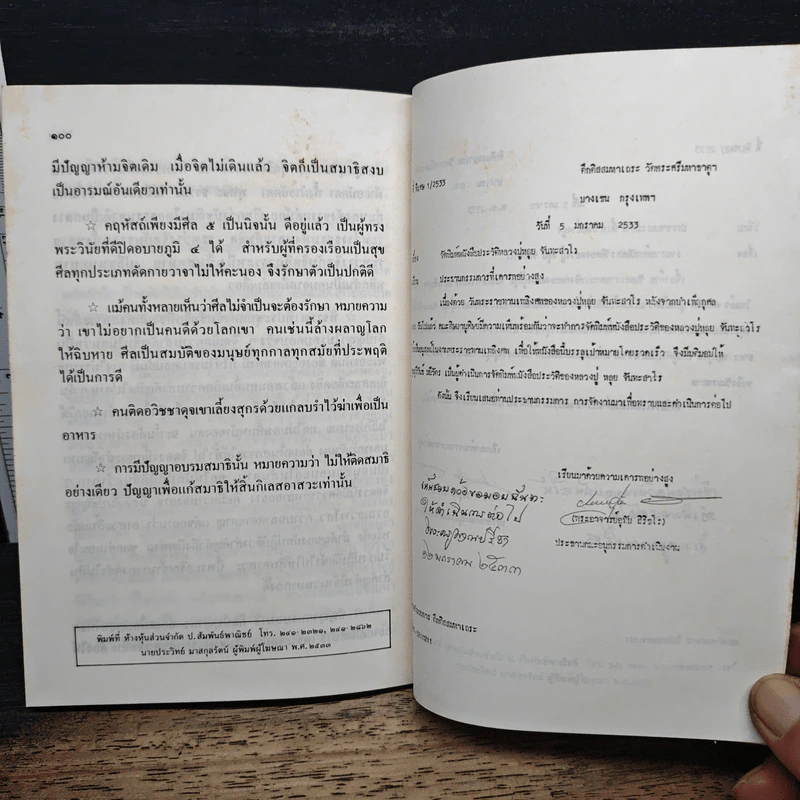 ๑๐๐
มีปัญญาห้ามจิตเดิม เมื่อจิตไม่เดินแล้ว จิตก็เป็นสมาธิสงบ
เป็นอารมณ์อันเดียวเท่านั้น
☆ คฤหัสถ์เพียงมีศีล ๕ เป็นนิจนั้น ดีอยู่แล้ว เป็นผู้ทรง
พระวินัยที่ดีปิดอบายภูมิ ๔ ได้ สำหรับผู้ที่ครองเรือนเป็นสุข
ศีลทุกประเภทตัดกายวาจาไม่ให้คะนอง จึงรักษาตัวเป็นปกติดี
☆ แม้คนทั้งหลายเห็นว่าศีลไม่จำเป็นจะต้องรักษา หมายความ
ว่า เขาไม่อยากเป็นคนดีด้วยโลกเขา คนเช่นนี้ล้างผลาญโลก
ให้ฉิบหาย ศีลเป็นสมบัติของมนุษย์ทุกกาลทุกสมัยที่ประพฤติ
ได้เป็นการดี
☆ คนติดอวิชชาดุจเขาเลี้ยงสุกรด้วยแกลบรำไว้ฆ่าเพื่อเป็น
อาหาร
☆ การมีปัญญาอบรมสมาธินั้น หมายความว่า ไม่ให้ติดสมาธิ
อย่างเดียว ปัญญาเพื่อแก้สมาธิให้สิ้นกิเลสอาสวะเท่านั้น
พิมพ์ที่ ห้างหุ้นส่วนจำกัด ป.สัมพันธ์พาณิชย์ โทร. ๒๔๑-๒๓๒๑, ๒๔๑-๒๘๖๒
นายประวิทย์ มาสกุลรัตน์ ผู้พิมพ์ผู้โฆษณา พ.ศ.๒๕๓๓
ที่ พิเศษ 1/2533
ตึกติสสมหาเถระ วัดพระศรีมหาธาตุฯ
บางเขน กรุงเทพฯ
วันที่ 5 มกราคม 2533
จัดพิมพ์หนังสือประวัติหลวงปู่หลุย จันทะสาโร
ประธานกรรมการที่เคารพอย่างสูง
เนื่องด้วย วันพระราชทานเพลิงศพของหลวงปู่หลุย จันทะสาโร หลังจากบำเพ็ญกุศล
คณะศิษยานุศิษย์มีความเห็นพร้อมกันว่าจะทำการจัดพิมพ์หนังสือประวัติของหลวงปู่หลุย จันทะสาโร
เพื่อให้หนังสือนี้บรรลุเป้าหมายโดยรวดเร็ว จึงมีมติมอบให้
เป็นผู้ดำเนินการจัดพิมพ์หนังสือประวัติของหลวงปู่ หลุย จันทะสาโร
ดังนั้น จึงเรียนเสนอท่านประธานกรรมการ การจัดงานมาเพื่อทราบและดำเนินการต่อไป
เรียนมาด้วยความเคารพอย่างสูง
(พระอาจารย์อุทัย สิริธโร)
ประธานคณะอนุกรรมการดำเนินงาน
ให้ดำเนินการต่อไป
๑๒ มกราคม ๒๕๓๓
ตึกติสสมหาเถระ